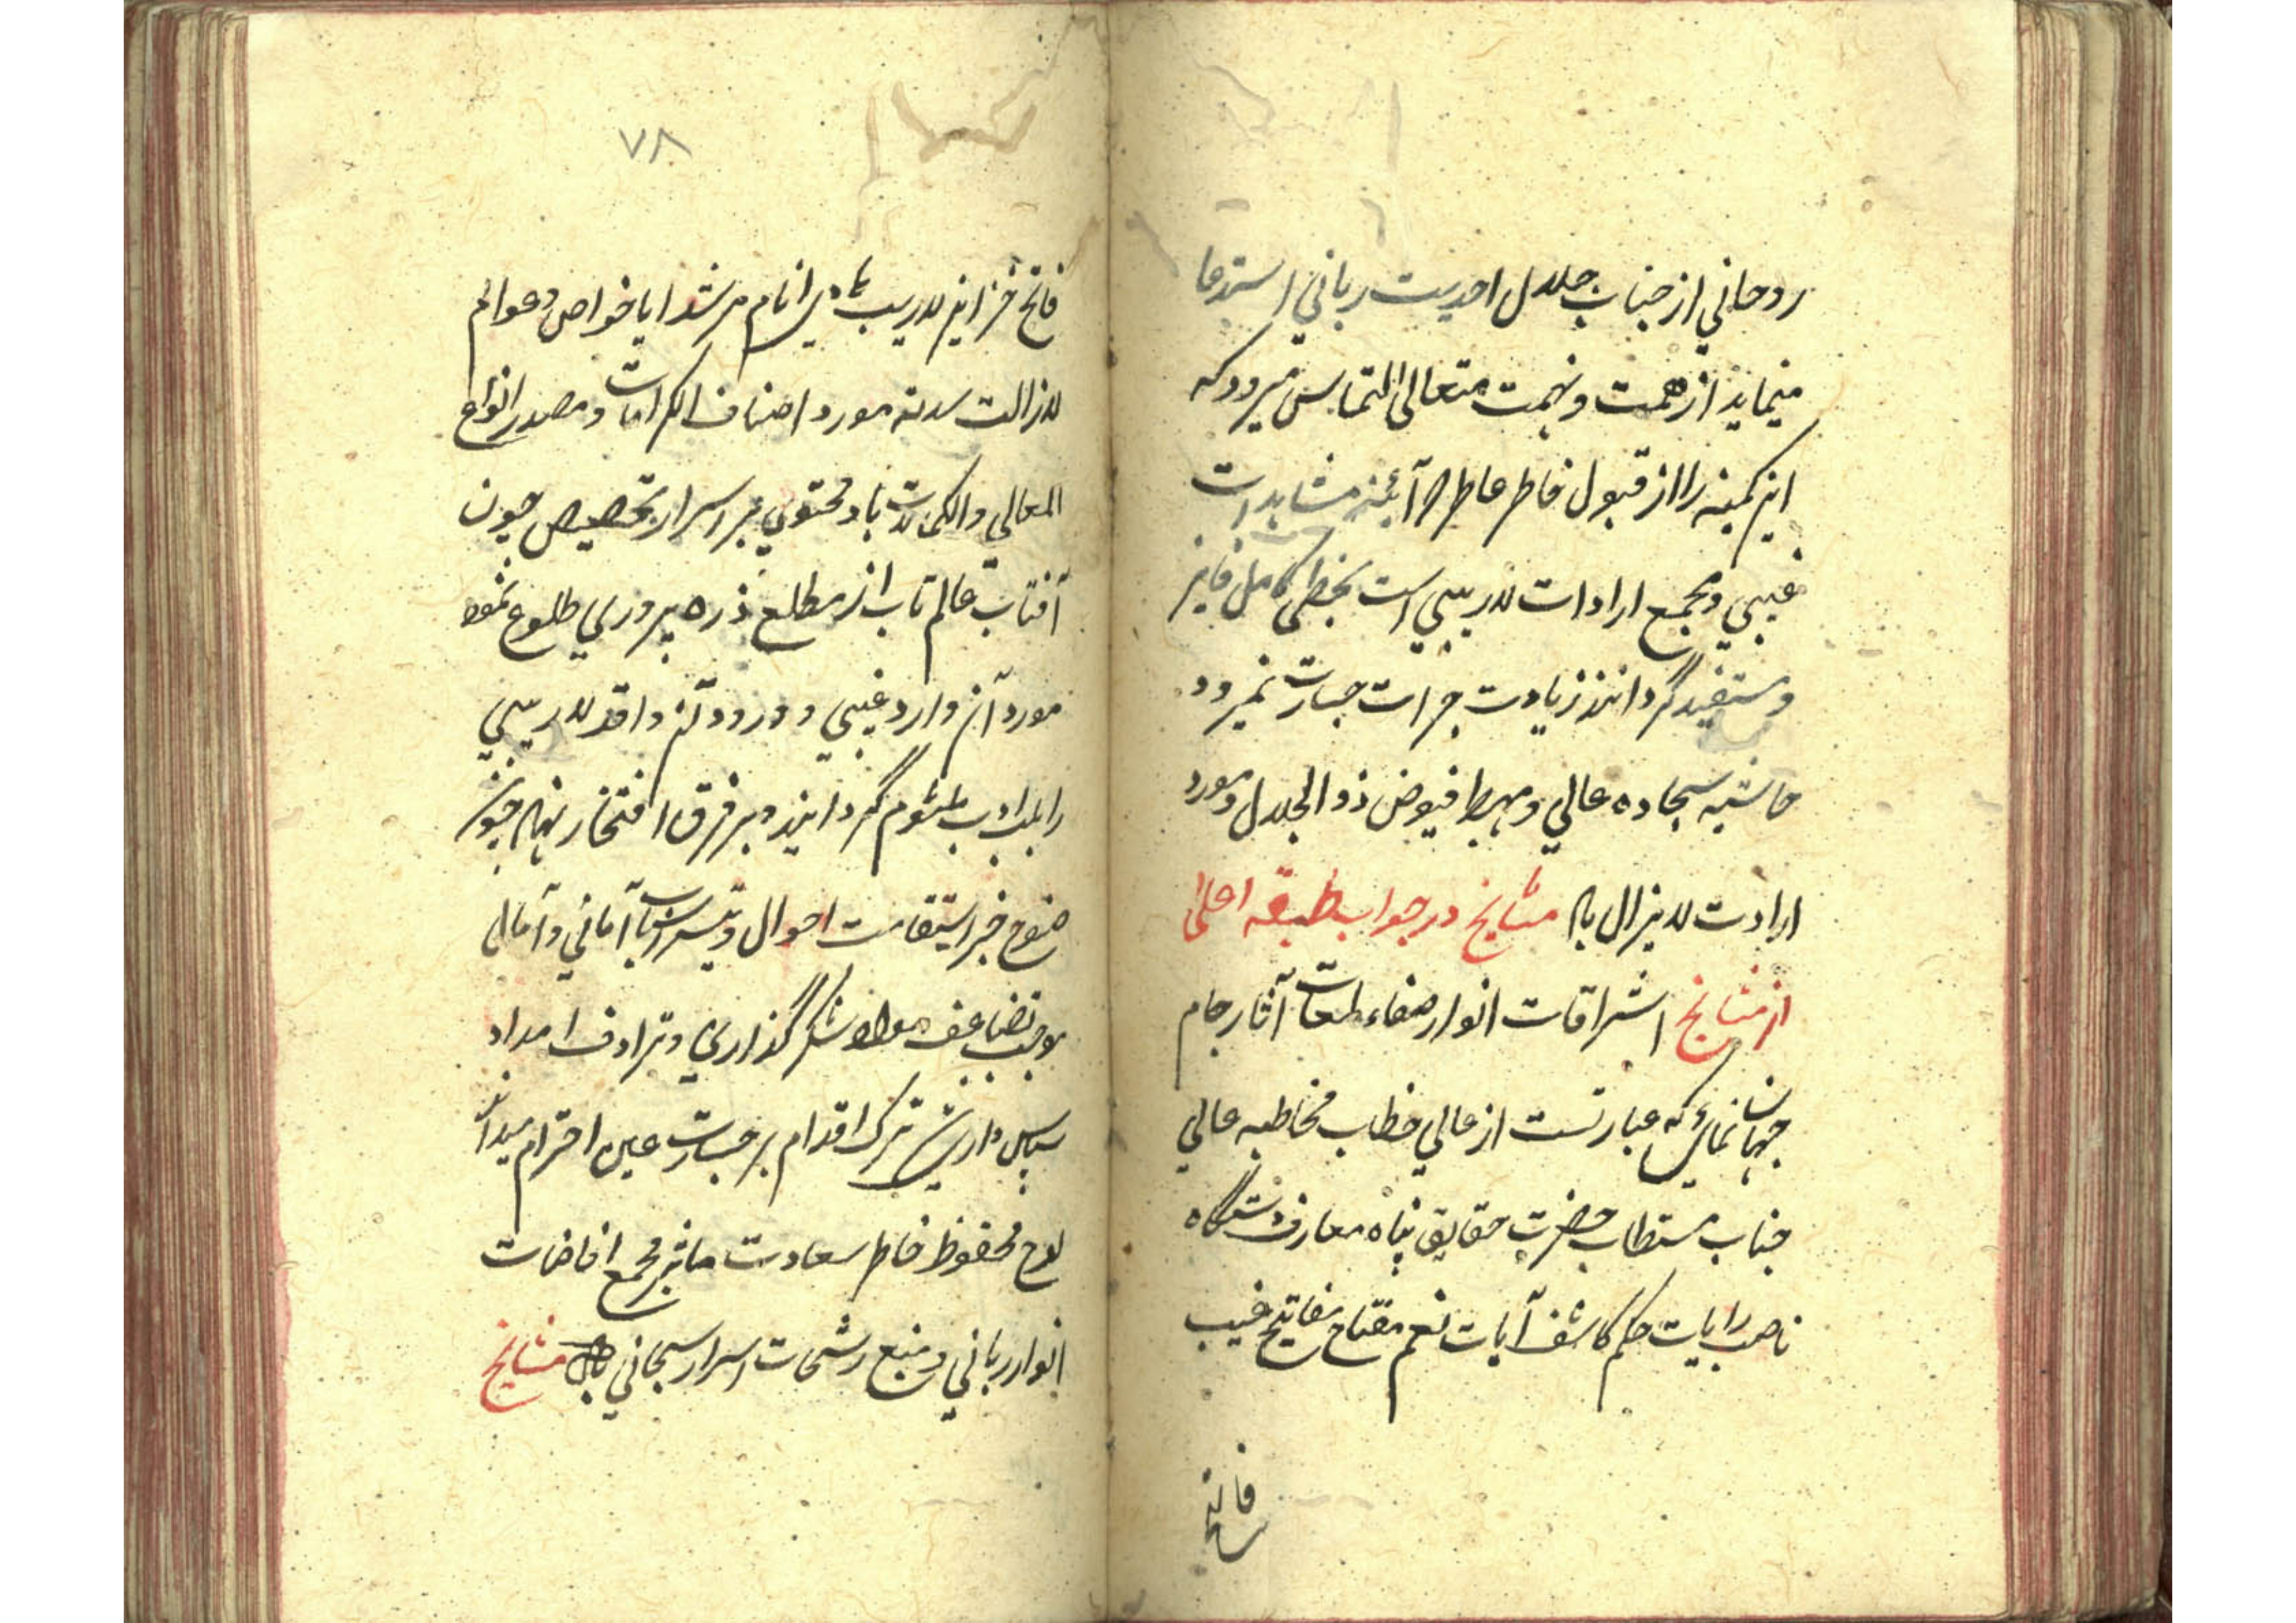 روحاني از جناب جلال احديت رباني استدعا
مينمايد از همت و نهمت متعالی التماس ميرود که
اين کمينه را از قبول خاطر عاطر که آئينه مشاهدات
غيبي و مجمع ارادات لاريبي است بحظی کامل فايز
و مستفيد گردانند زيادت جرات جسارت نميرود
حاشيه سجاده عالي و مهبط فيوض ذو الجلال و مورد
ارادت لا يزال باد مشايخ در جواب طبقه اعلی
از مشايخ اشراقات انوار صفاء لمعات آثار جام
جهان نمای که عبارتست از عالي خطاب مخاطبه عالي
جناب مستطاب حضرت حقايق پناه معارف دستگاه
ناصب رايات حکم کاشف آيات نعم مفتاح مفاتيح غيب
فاتح
٧٨
فاتح خزاين لاريب هادي انام مرشد ايا خواص و عوام
لازالت سدته مورد اصناف الکرامات و مصدر انواع
المعالي والکمالات باد محتوي بر اسرار تخصيص چون
آفتاب عالم تاب از مطلع ذره پروري طلوع نمود
مورد آن وارد غيبي و ورود آن واقد لاريبي
را بلب ادب ملثوم گردانيده بر فرق افتخار نهاد چون
خبر استقامت احوال و تيسر اسباب آماني و آمالی
موجب تضاعف مواد شکر گذاري و ترادف امداد
سپاس داري شد ترک اقدام بر جسارت عين احترام ميداند
لوح محفوظ خاطر سعادت ماثر مجمع افاضات
انوار رباني و منبع رشحات اسرار سبحاني باد مشايخ